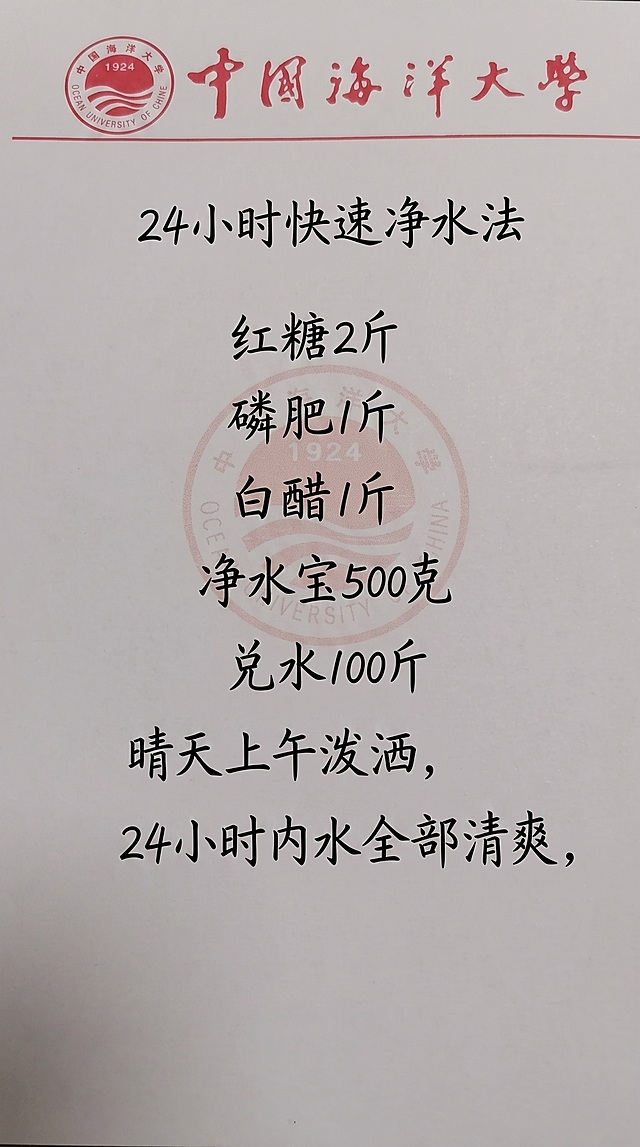 中国海洋大学
1924
OCEAN UNIVERSITY OF CHINA
中国海洋大學
24小时快速净水法
红糖2斤
磷肥1斤
白醋1斤
净水宝500克
兑水100斤
晴天上午泼洒，
24小时内水全部清爽，
1924